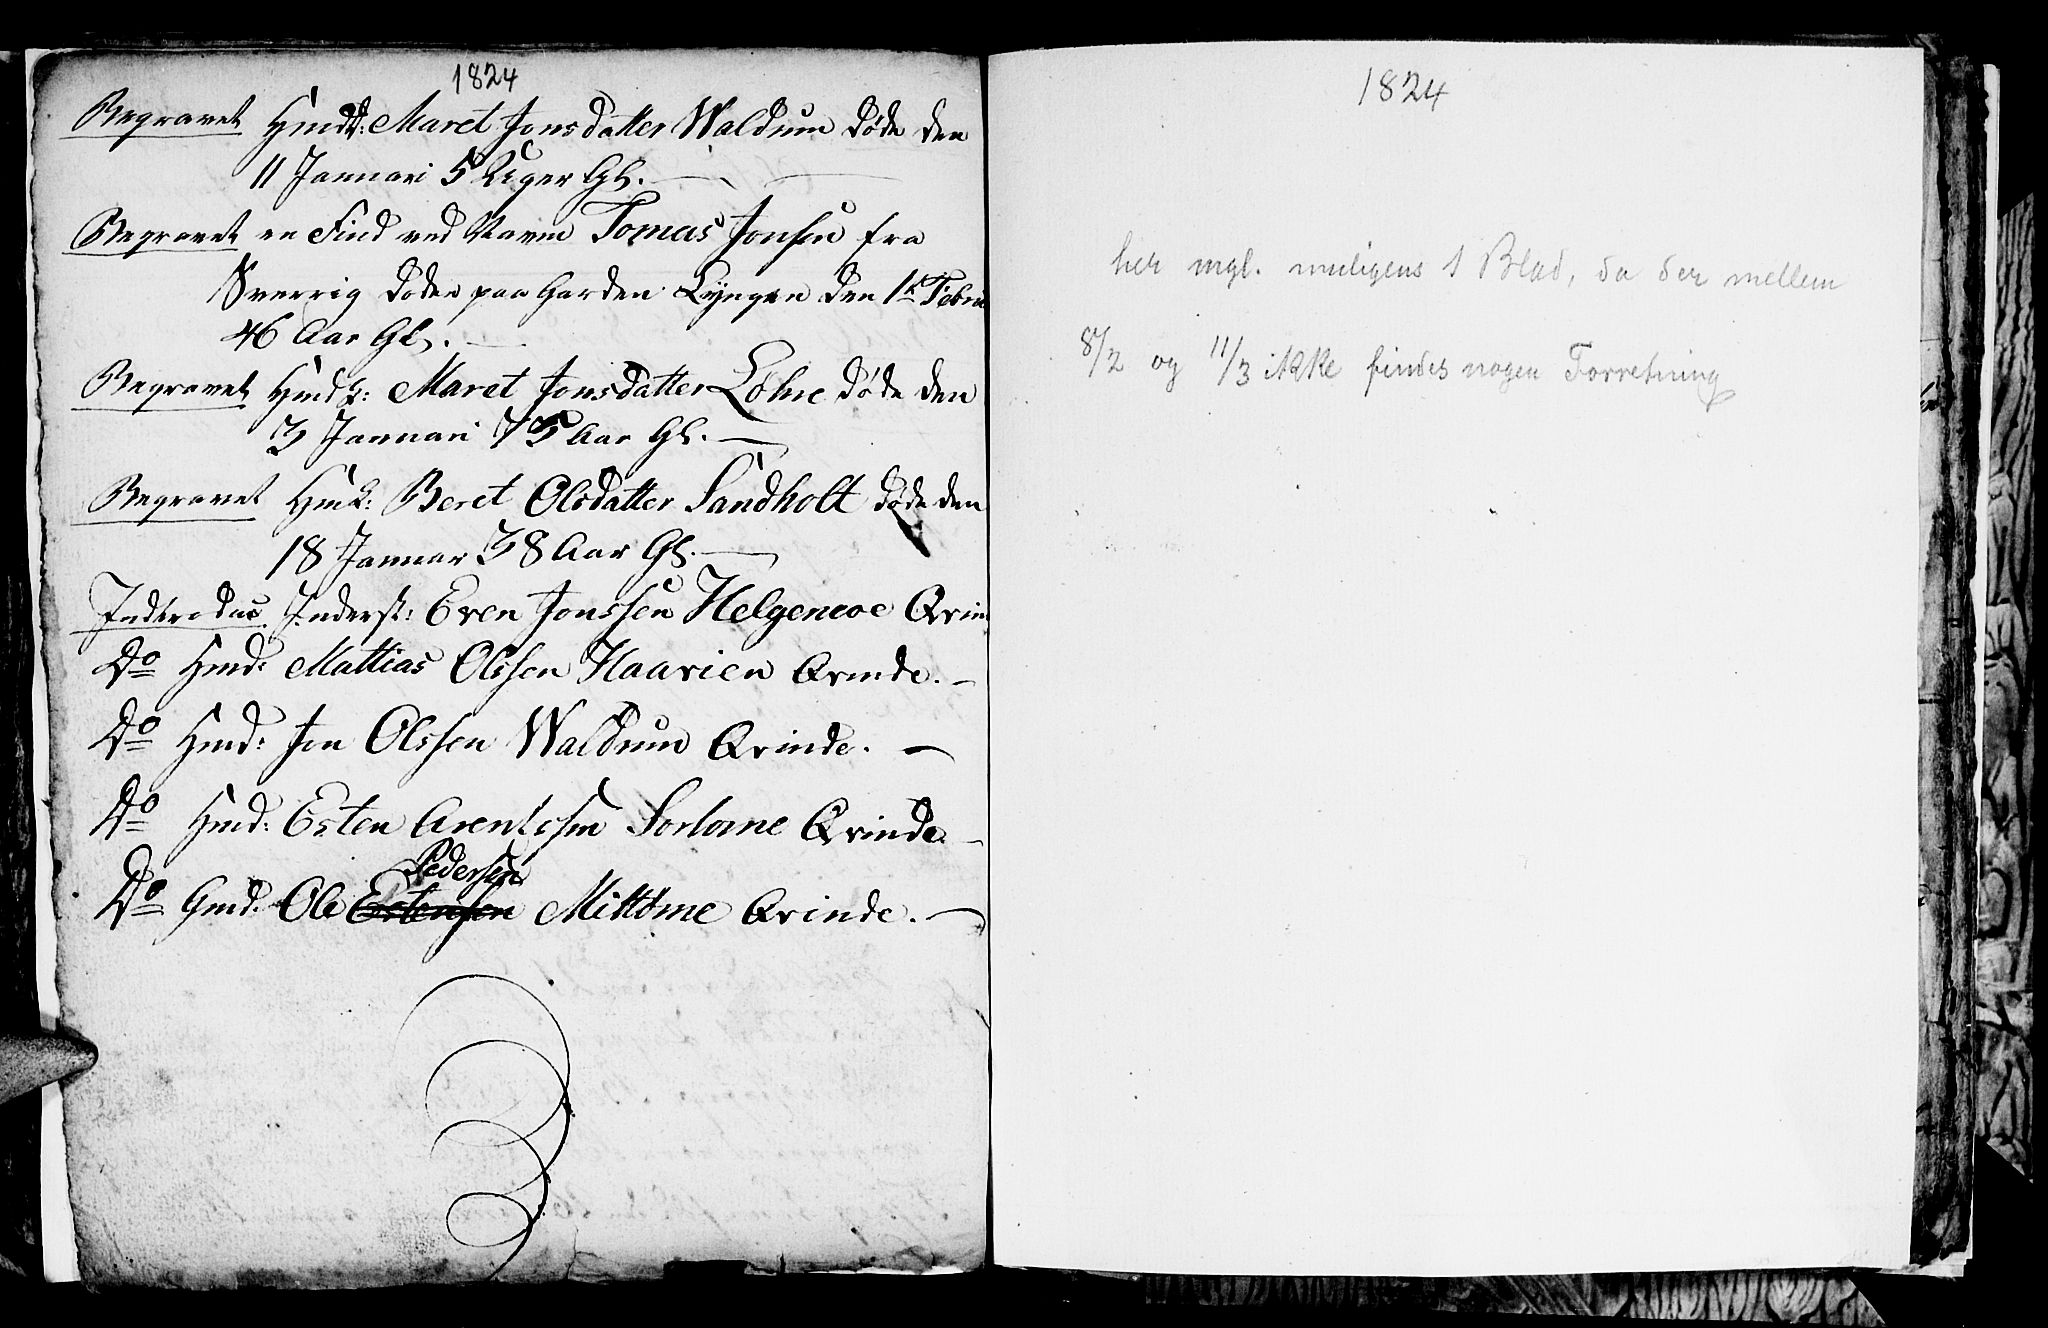 1824
Begravet Hmdt: Maret Jonsdatter Waldum døde den
11 Januari 5 Uger Gl.
Begravet en Find ved Navn Tomas Jonsen fra
Sverrig døde paa Garden Lyngen den 1te Febru
46 Aar Gl.
Begravet Maret Jonsdatter Løhre døde den
3 Januari 75 Aar Gl.
Begravet Hmk: Beret Olsdatter Sandholt døde den
18 Januar 38 Aar Gl.
Indtroduc Inderst: Even Jonssen Helgemoe Qvin
Do Hmd: Mattias Olssen Haarien Qvinde.
Do Hmd: Jon Olssen Waldum Qvinde.
Do Hmd: Esten Arentssen Qvinde.
Pedersen
Do Gmd: Ole Estensen Mittømme Qvinde.
1824
her mgl. muligens 1 Blad, da der mellem
8/2 og 11/3 ikke findes nogen Forretning